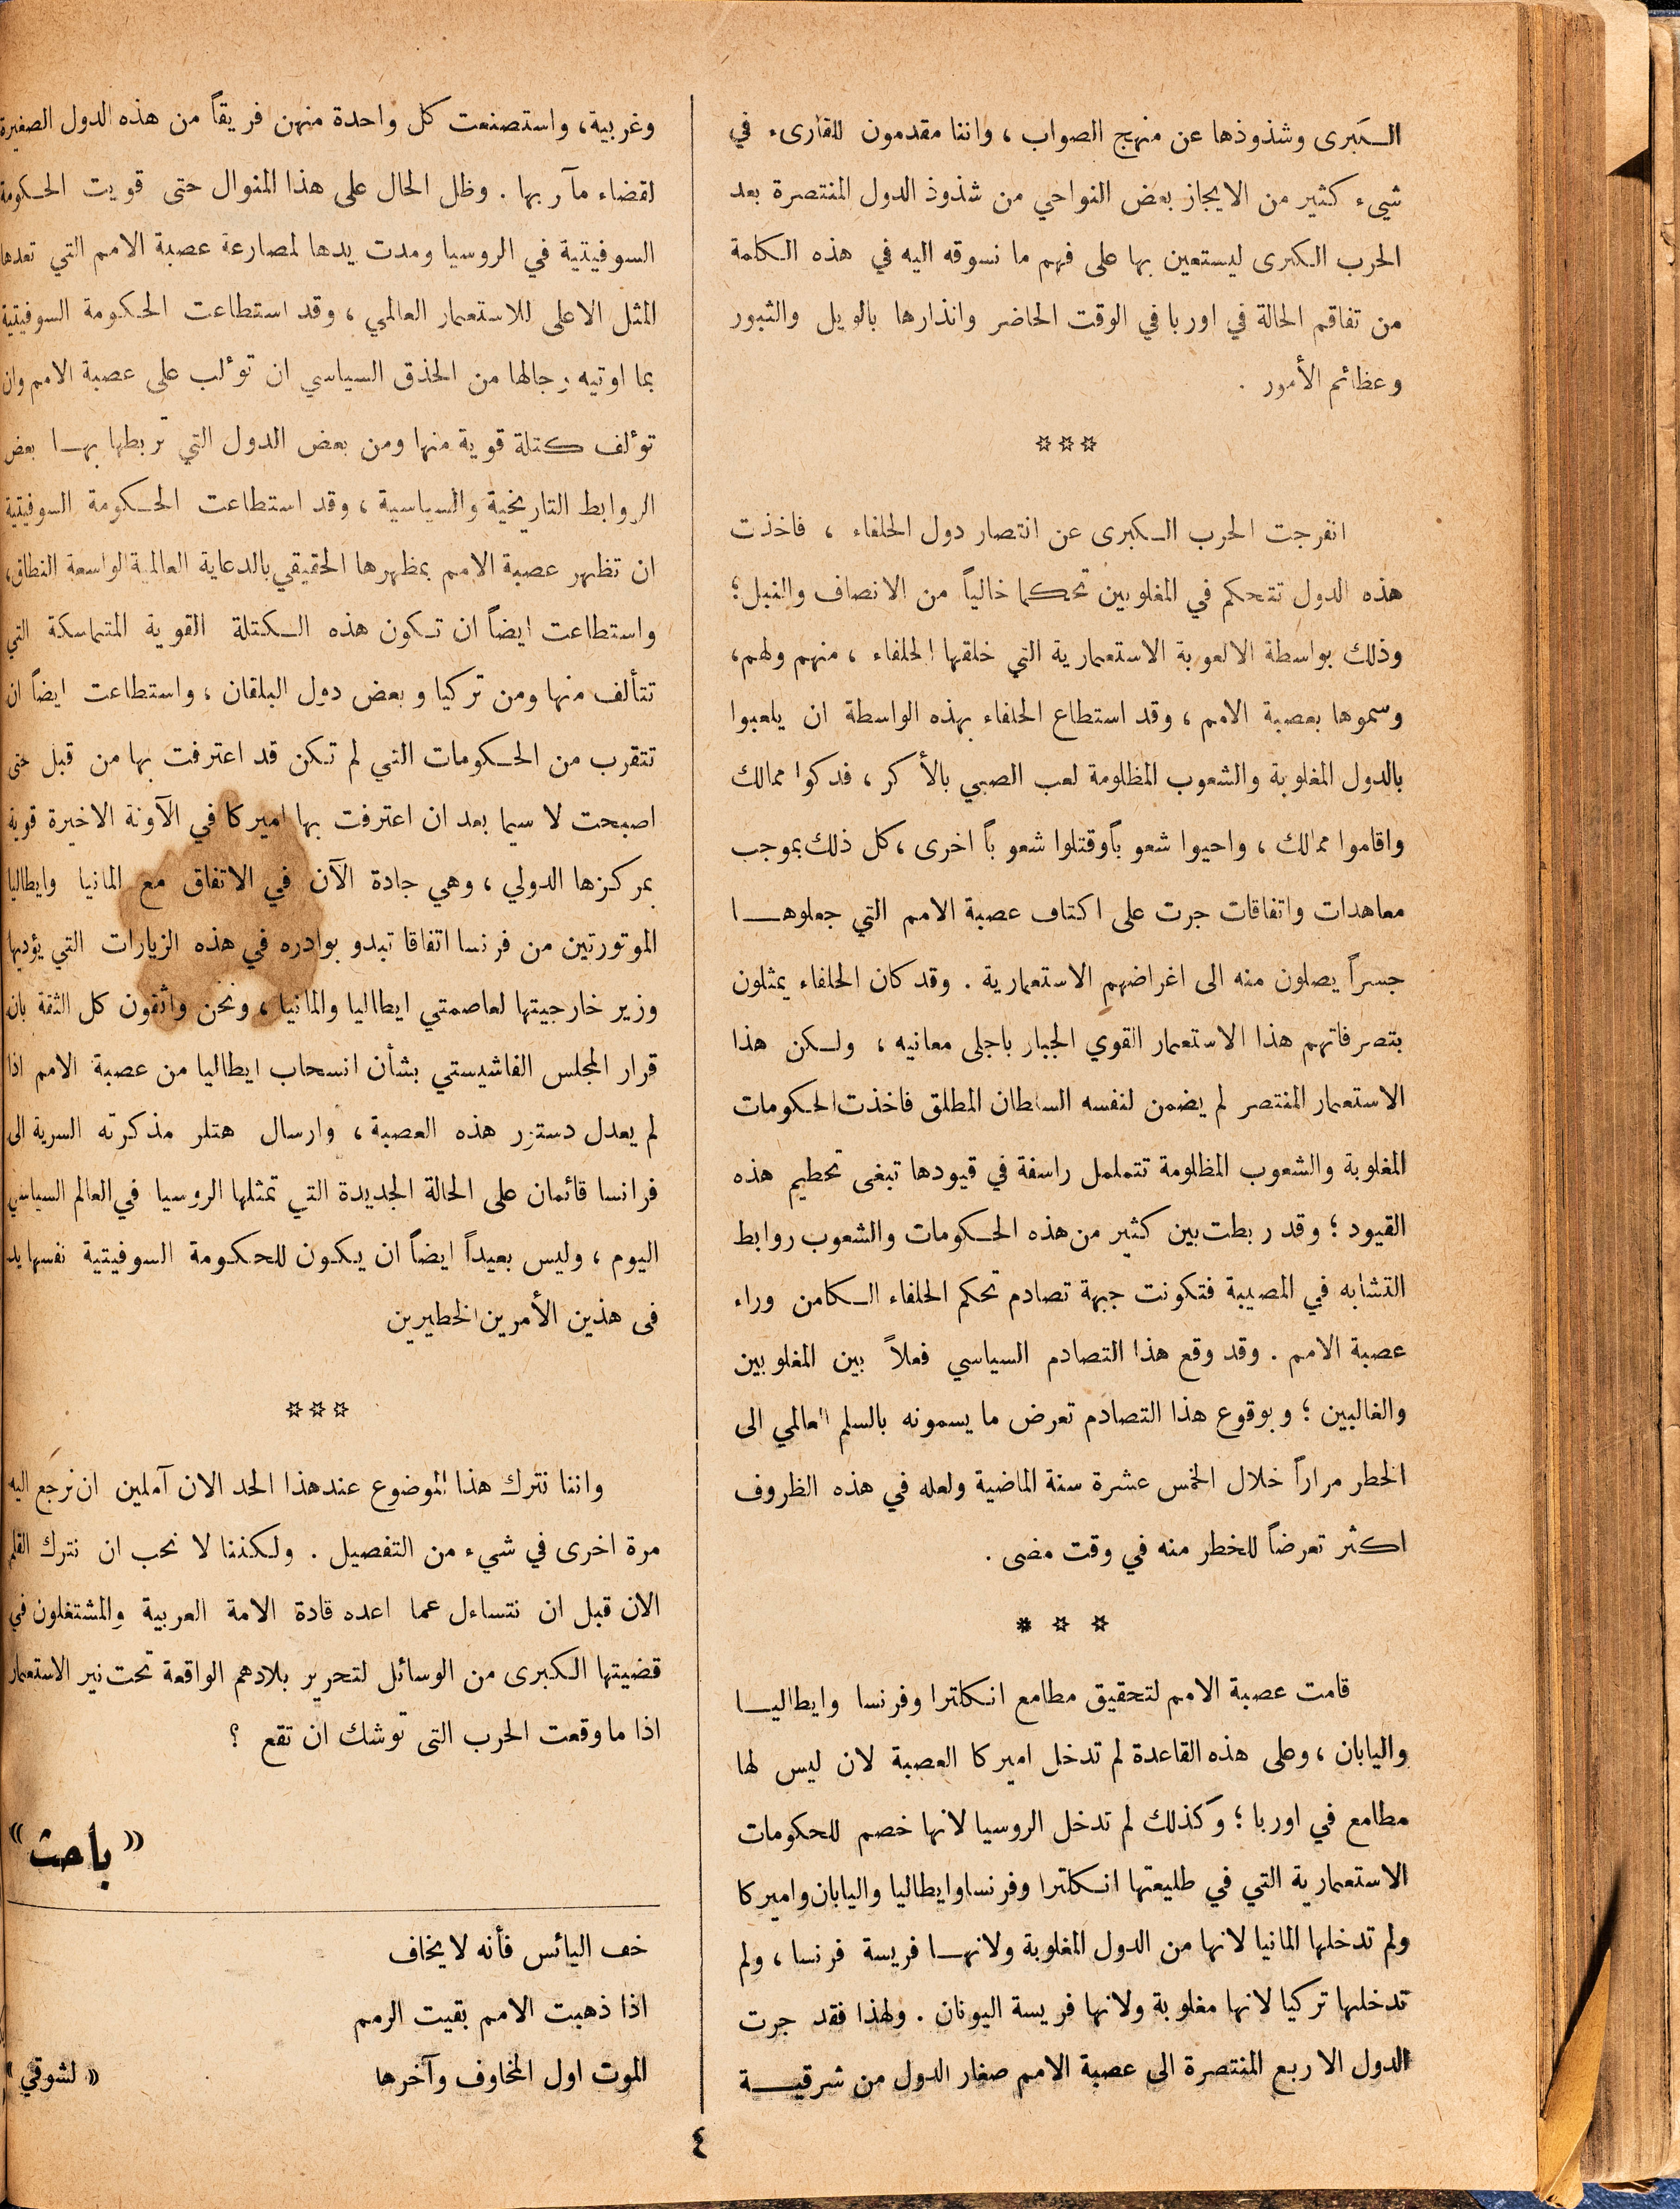 الكبرى وشذوذها عن منهج الصواب ، واننا مقدمون للقارىء في
شيء كثير من الايجاز بعض النواحي من شذوذ الدول المنتصرة بعد
الحرب الكبرى ليستعين بها على فهم ما نسوقه اليه في هذه الكلمة
من تفاقم الحالة في اوربا في الوقت الحاضر وانذارها بالويل والثبور
وعظائم الأمور .
☆☆☆
انفرجت الحرب الكبرى عن انتصار دول الحلفاء ، فاخذت
هذه الدول تتحكم في المغلوبين تحكما خالياً من الانصاف والنبل؛
وذلك بواسطة الالعوبة الاستعمارية التي خلقها الحلفاء ، منهم ولهم،
وسموها بعصبة الامم ، وقد استطاع الحلفاء بهذه الواسطة ان يلعبوا
بالدول المغلوبة والشعوب المظلومة لعب الصبي بالأكر ، فدكوا ممالك
واقاموا ممالك ، واحيوا شعوباً وقتلوا شعوباً اخرى ،كل ذلك بموجب
معاهدات واتفاقات جرت على اكتاف عصبة الامم التي جعلوها
جسراً يصلون منه الى اغراضهم الاستعمارية . وقد كان الحلفاء يمثلون
بتصرفاتهم هذا الاستعمار القوي الجبار باجلى معانيه ، ولكن هذا
الاستعمار المنتصر لم يضمن لنفسه السلطان المطلق فاخذت الحكومات
المغلوبة والشعوب المظلومة تتململ راسفة في قيودها تبغى تحطيم هذه
القيود ؛ وقد ربطت بين كثير من هذه الحكومات والشعوب روابط
التشابه في المصيبة فتكونت جبهة تصادم تحكم الحلفاء الكامن وراء
عصبة الامم . وقد وقع هذا التصادم السياسي فعلاً بين المغلوبين
والغالبين ؛ وبوقوع هذا التصادم تعرض ما يسمونه بالسلم العالمي الى
الخطر مراراً خلال الخمس عشرة سنة الماضية ولعله في هذه الظروف
اكثر تعرضاً للخطر منه في وقت مضى .
☆ ☆ ☆
قامت عصبة الامم لتحقيق مطامع انكلترا وفرنسا وايطاليا
واليابان ، وعلى هذه القاعدة لم تدخل اميركا العصبة لان ليس لها
مطامع في اوربا ؛ وكذلك لم تدخل الروسيا لانها خصم للحكومات
الاستعمارية التي في طليعتها انكلترا وفرنسا وايطاليا واليابان واميركا
ولم تدخلها المانيا لانها من الدول المغلوبة ولانها فريسة فرنسا ، ولم
تدخلها تركيا لانها مغلوبة ولانها فريسة اليونان . ولهذا فقد جرت
الدول الاربع المنتصرة الى عصبة الامم صغار الدول من شرقية
وغربية، واستصنعت كل واحدة منهن فريقاً من هذه الدول الصغيرة
لقضاء مآربها . وظل الحال على هذا المنوال حتى قويت الحكومة
السوفيتية في الروسيا ومدت يدها لمصارعة عصبة الامم التي تعدها
المثل الاعلى للاستعمار العالمي ، وقد استطاعت الحكومة السوفيتية
بما اوتيه رجالها من الحذق السياسي ان تؤلب على عصبة الامم وان
تؤلف كتلة قوية منها ومن بعض الدول التي تربطها بها بعض
الروابط التاريخية والسياسية ، وقد استطاعت الحكومة السوفيتية
ان تظهر عصبة الامم بمظهرها الحقيقي بالدعاية العالمية الواسعة النطاق،
واستطاعت ايضاً ان تكون هذه الكتلة القوية المتماسكة التي
تتألف منها ومن تركيا وبعض دول البلقان ، واستطاعت ايضاً ان
تتقرب من الحكومات التي لم تكن قد اعترفت بها من قبل حتى
اصبحت لا سيما بعد ان اعترفت بها اميركا في الآونة الاخيرة قوية
بمركزها الدولي ، وهي جادة الآن في الاتفاق مع المانيا وايطاليا
الموتورتين من فرنسا اتفاقا تبدو بوادره في هذه الزيارات التي يؤديها
وزير خارجيتها لعاصمتي ايطاليا والمانيا ، ونحن واثقون كل الثقة بان
قرار المجلس الفاشيستي بشأن انسحاب ايطاليا من عصبة الامم اذا
لم يعدل دستور هذه العصبة ، وارسال هتلر مذكرته السرية الى
فرانسا قائمان على الحالة الجديدة التي تمثلها الروسيا في العالم السياسي
اليوم ، وليس بعيداً ايضاً ان يكون للحكومة السوفيتية نفسها يد
فى هذين الأمرين الخطيرين
☆☆☆
واننا نترك هذا الموضوع عند هذا الحد الان آملين ان نرجع اليه
مرة اخرى في شيء من التفصيل . ولكننا لا نحب ان نترك القلم
الان قبل ان نتساءل عما اعده قادة الامة العربية والمشتغلون في
قضيتها الكبرى من الوسائل لتحرير بلادهم الواقعة تحت نير الاستعمار
اذا ما وقعت الحرب التى توشك ان تقع ؟
« باحث »
خف اليائس فأنه لا يخاف
اذا ذهبت الامم بقيت الرمم
الموت اول المخاوف وآخرها
« لشوقي »
٤